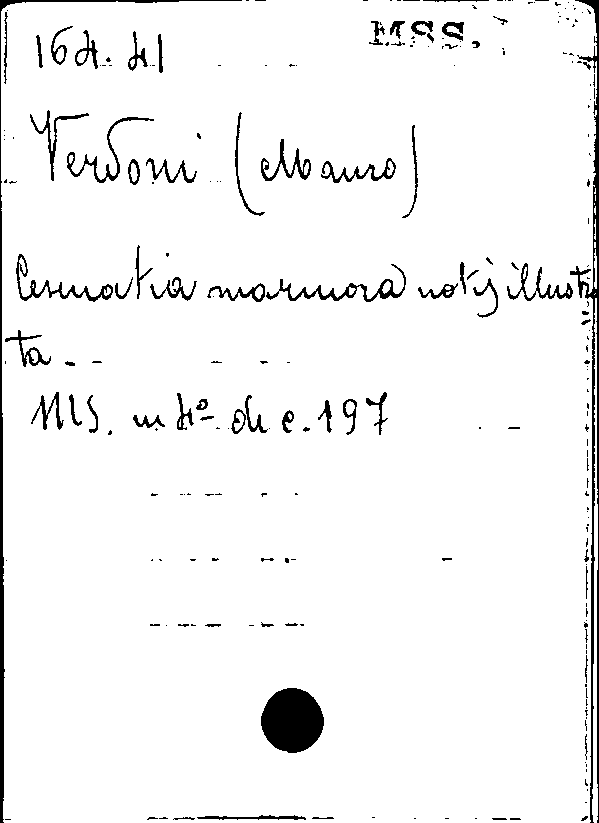 164.41
MSS.
Verdoni (Mauro)
Cesenatia marmora notis illustra
ta
MS. in 4º di c. 197